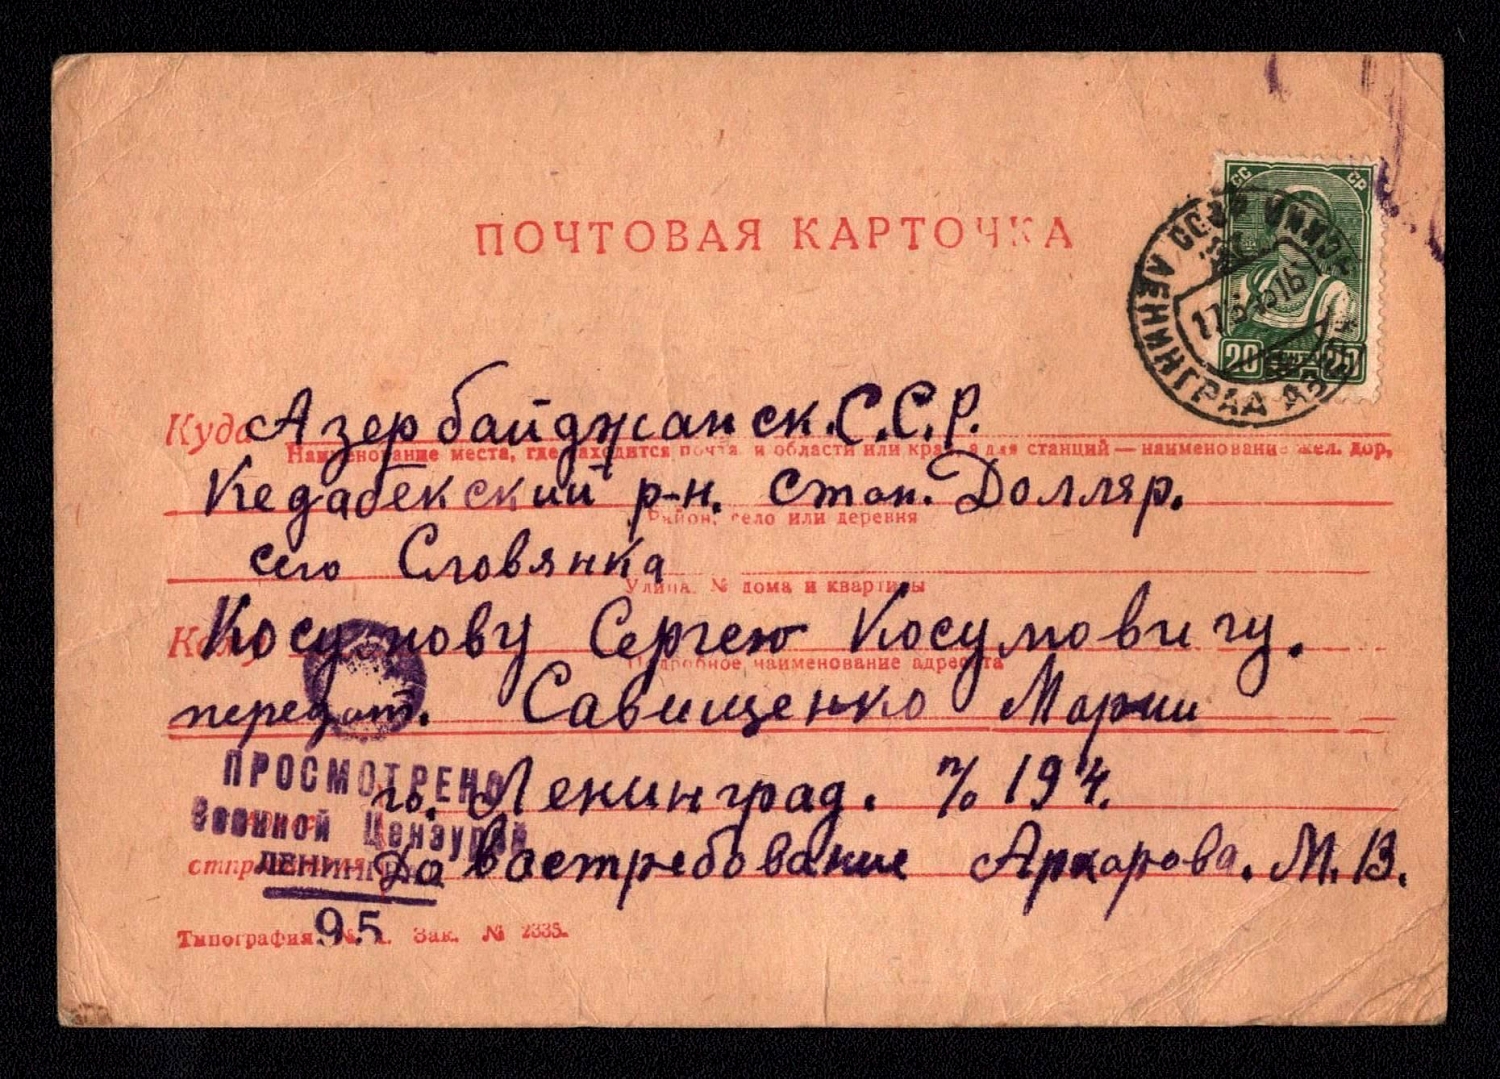 ПОЧТОВАЯ КАРТОЧКА
СС СР
ЛЕНИНГРАД
20 20
Куда Азербайджанск.С.С.Р.
Наименование места, где находится почта и области или края а для станций — наименование жел. дор,
Кедабекский р-н. стан. Долляр.
Район, село или деревня
село Словянка
Улица, № дома и квартиры
Кому Косумову Сергею Косумовичу.
Подробное наименование адресата
передат. Савищенко Марии
ПРОСМОТРЕНО
гор. Ленинград. п/о 194.
Военной Цензурой
До востребование Архарова. М. В.
ЛЕНИНГРАД
95
Типография № Зак. № 2335.